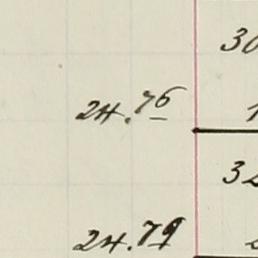 30
24.76
1
32
24.79